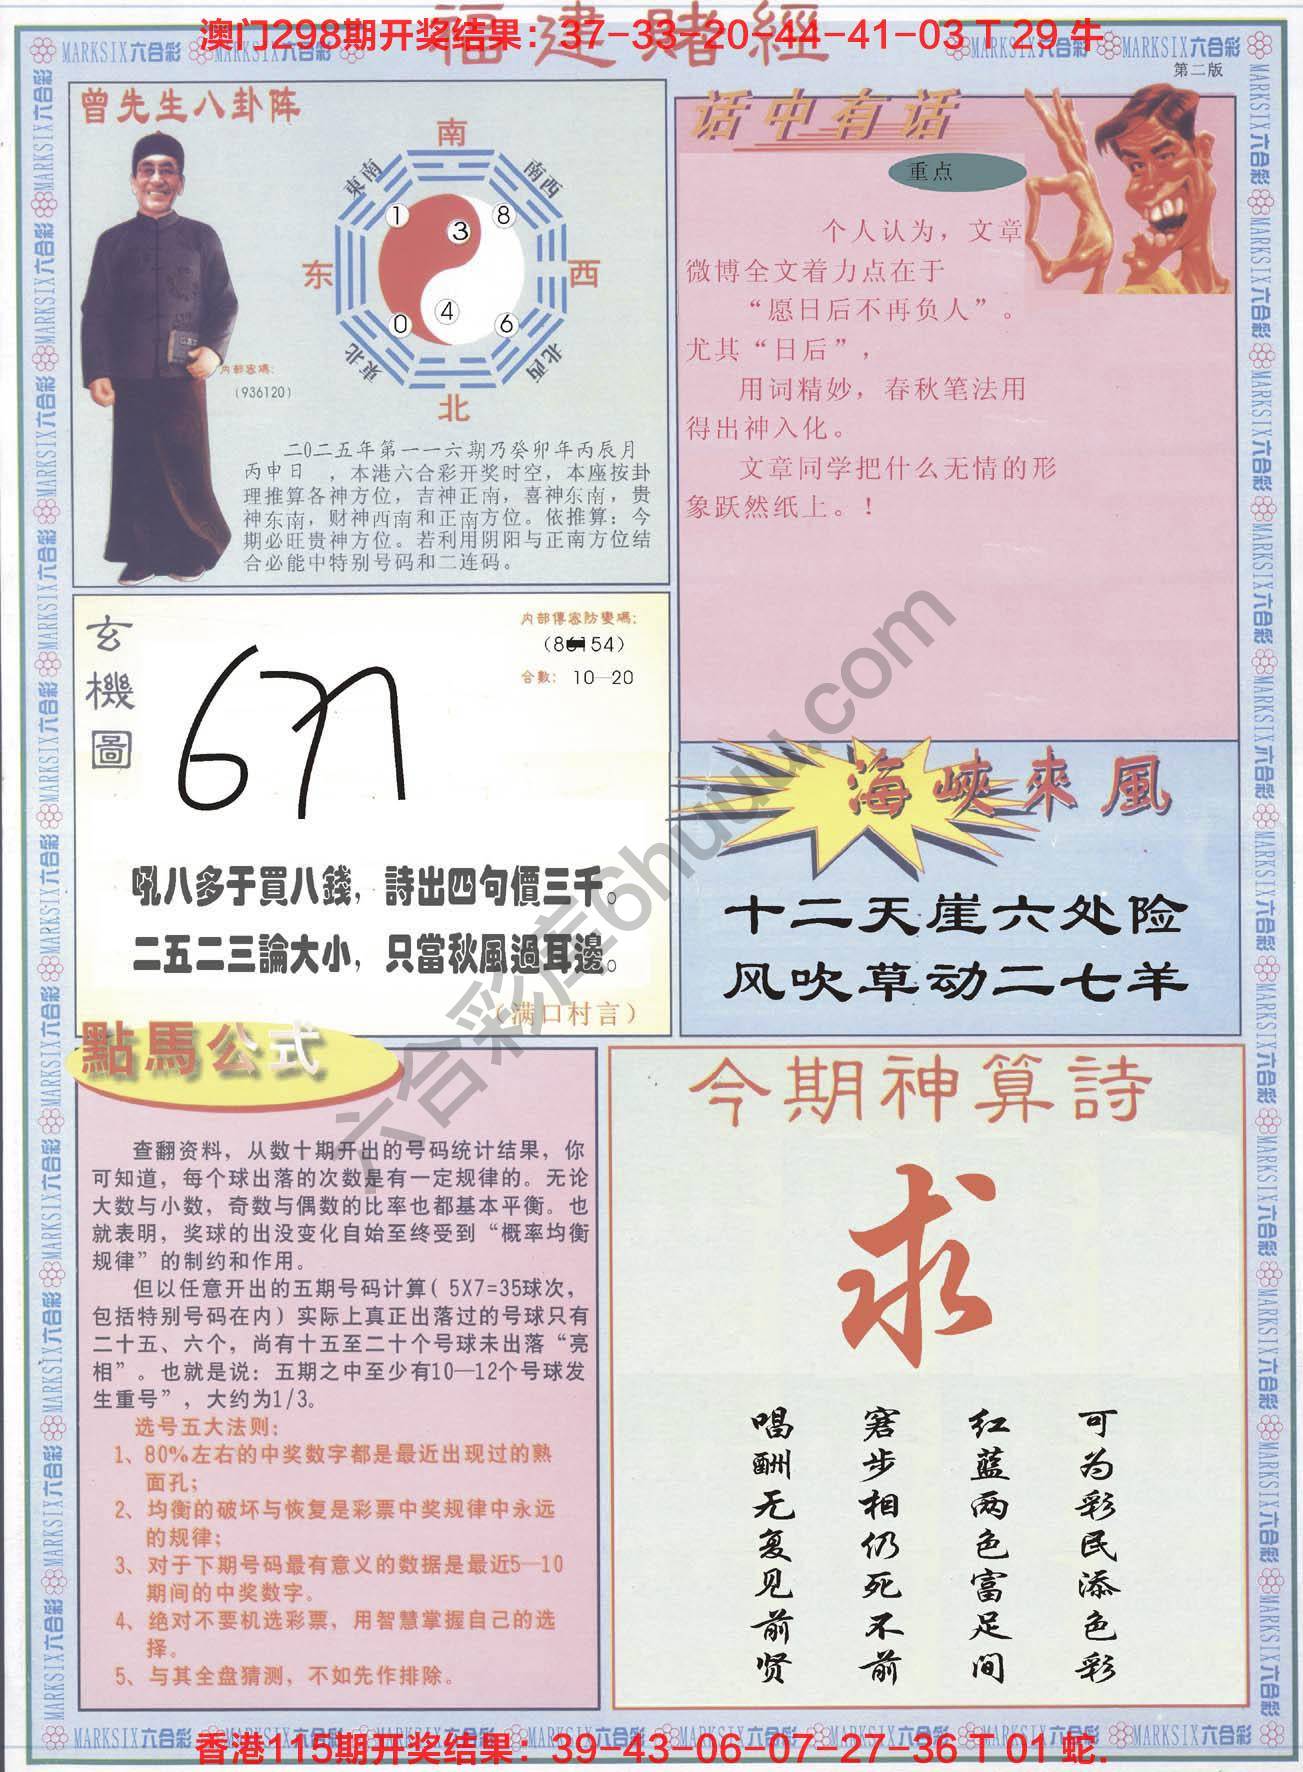 福建赌經
澳门298期开奖结果：37-33-20-44-41-03 T 29 牛
MARKSIX六合彩
第二版
曾先生八卦阵
南
東南
南西
东
西
東北
北西
北
1
8
3
4
0
6
内部密碼：
（936120）
二0二五年第一一六期乃癸卯年丙辰月
丙申日　，本港六合彩开奖时空，本座按卦
理推算各神方位，吉神正南，喜神东南，贵
神东南，财神西南和正南方位。依推算：今
期必旺贵神方位。若利用阴阳与正南方位结
合必能中特别号码和二连码。
话中有话
重点
个人认为，文章
微博全文着力点在于
“愿日后不再负人”。
尤其“日后”，
用词精妙，春秋笔法用
得出神入化。
文章同学把什么无情的形
象跃然纸上。！
玄機圖
内部傳密防變碼：
（86154）
合數：10—20
吼八多于買八錢，詩出四句價三千。
二五二三論大小，只當秋風過耳邊。
（满口村言）
海峽來風
十二天崖六处险
风吹草动二七羊
點馬公式
查翻资料，从数十期开出的号码统计结果，你
可知道，每个球出落的次数是有一定规律的。无论
大数与小数，奇数与偶数的比率也都基本平衡。也
就表明，奖球的出没变化自始至终受到“概率均衡
规律”的制约和作用。
但以任意开出的五期号码计算（5X7=35球次，
包括特别号码在内）实际上真正出落过的号球只有
二十五、六个，尚有十五至二十个号球未出落“亮
相”。也就是说：五期之中至少有10—12个号球发
生重号”，大约为1/3。
选号五大法则：
1、80%左右的中奖数字都是最近出现过的熟
面孔；
2、均衡的破坏与恢复是彩票中奖规律中永远
的规律；
3、对于下期号码最有意义的数据是最近5—10
期间的中奖数字。
4、绝对不要机选彩票，用智慧掌握自己的选
择。
5、与其全盘猜测，不如先作排除。
今期神算詩
求
可为彩民添色彩
红蓝两色富足间
窘步相仍死不前
唱酬无复见前贤
六合彩库6huuu.com
香港115期开奖结果：39-43-06-07-27-36 T 01 蛇.